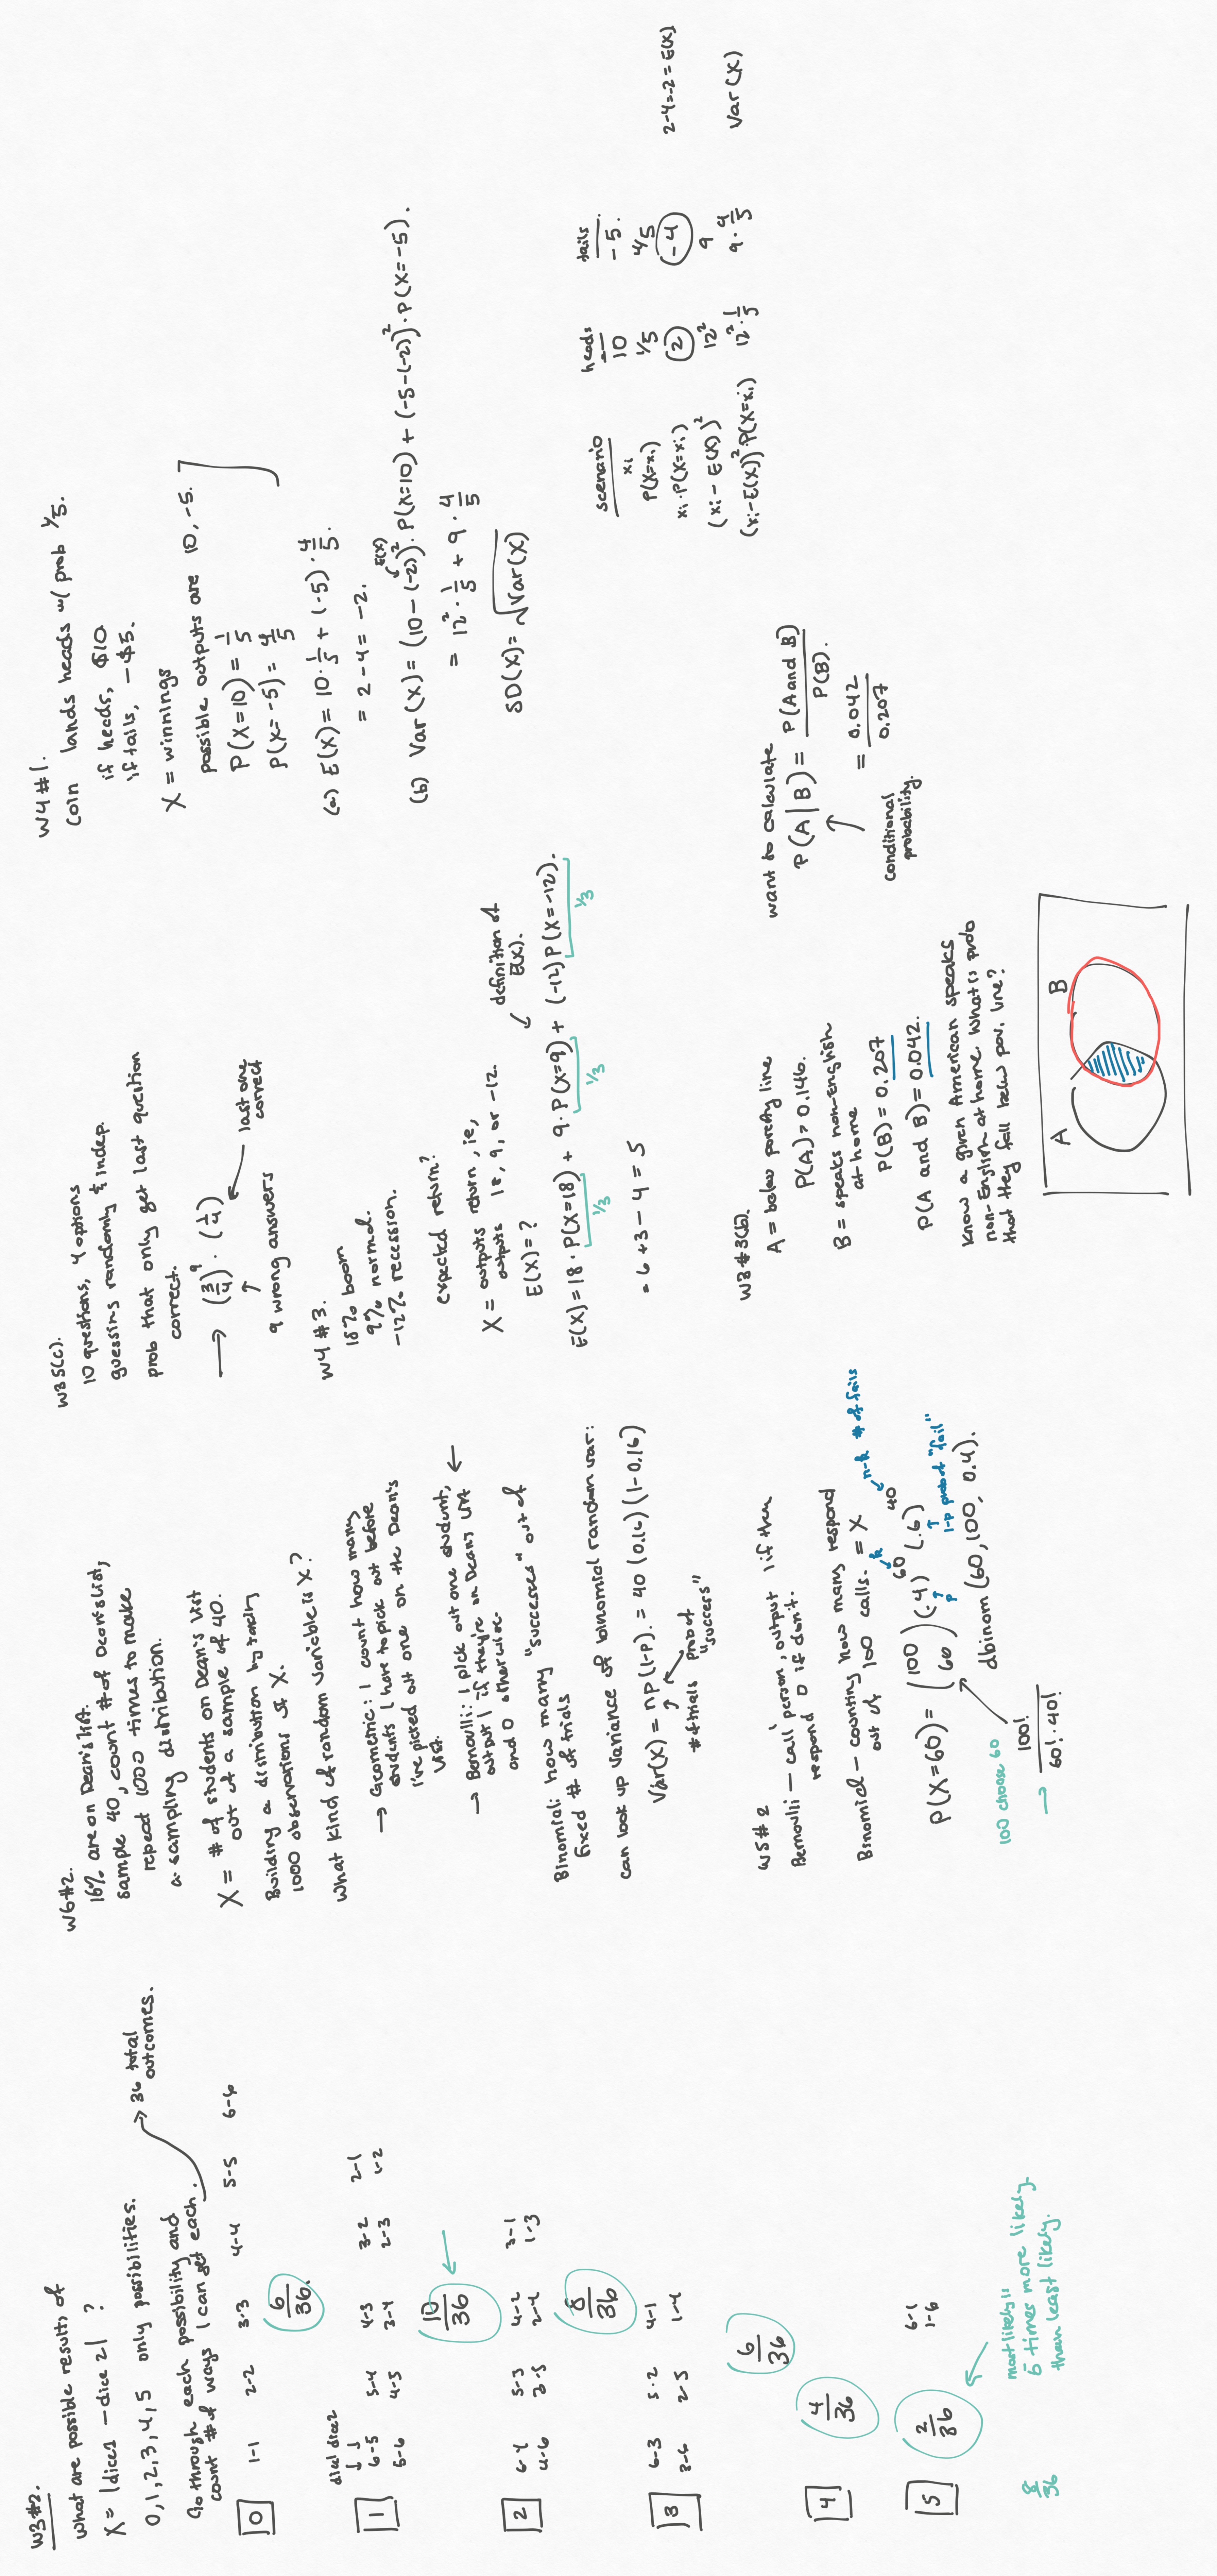 W3#2.
What are possible results of
X = |dice1 - dice 2| ?
0,1,2,3,4,5 only possibilities.
Go through each possibility and
count # of ways I can get each.
36 total
outcomes.
0 1-1 2-2 3-3 4-4 5-5 6-6
6/36.
dice1 dice2
1 6-5 5-4 4-3 3-2 2-1
5-6 4-5 3-4 2-3 1-2
10/36
2 6-4 5-3 4-2 3-1
4-6 3-5 2-4 1-3
8/36
3 6-3 5-2 4-1
3-6 2-5 1-4
6/36
4 4/36
5 2/36 6-1
1-6
8/36
most likely is
5 times more likely
than least likely.
W6#2.
16% are on Dean's list.
sample 40, count # of Dean's list,
repeat 1000 times to make
a sampling distribution.
X = # of students on Dean's list
out of a sample of 40.
Building a distribution by taking
1000 observations of X.
What kind of random variable is X?
→ Geometric: I count how many
students I have to pick out before
I've picked out one on the Dean's
list.
→ Bernoulli: I pick out one student, ←
output 1 if they're on Dean's list
and 0 otherwise.
Binomial: how many "successes" out of
fixed # of trials
can look up variance of binomial random var:
Var(X) = np(1-p). = 40 (0.16) (1-0.16)
# of trials prob of
"success"
W5#2
Bernoulli — call 1 person, output 1 if they
respond 0 if don't.
Binomial — counting how many respond
out of 100 calls. = X
k n-k # of fails
P(X=60) = (100 60) (.4)^60 (.6)^40
p 1-p prob of "fail"
dbinom (60,100, 0.4).
100 choose 60
→ 100! / 60!·40!
W3 5(c).
10 questions, 4 options
guessing randomly & indep.
prob that only get last question
correct.
→ (3/4)^9 · (1/4)
9 wrong answers
last one
correct
W4 #3.
18% boom
9% normal.
-12% recession.
expected return?
X = outputs return, ie,
outputs 18, 9, or -12.
E(X) = ?
definition of
E(X).
E(X) = 18 · P(X=18) + 9 · P(X=9) + (-12) P(X=-12).
1/3 1/3 1/3
= 6 + 3 - 4 = 5
W3 #3(b).
A = below poverty line
P(A) = 0.146.
B = speaks non-English
at home
P(B) = 0.207
P(A and B) = 0.042.
Know a given American speaks
non-English at home. What is prob
that they fall below pov. line?
A B
want to calculate
P(A|B) = P(A and B) / P(B).
= 0.042 / 0.207
conditional
probability.
W4 #1.
coin lands heads w/ prob 1/5.
if heads, $10
if tails, -$5.
X = winnings
possible outputs are 10, -5.
P(X=10) = 1/5
P(X=-5) = 4/5
(a) E(X) = 10 · 1/5 + (-5) · 4/5.
= 2 - 4 = -2.
E(X)
(b) Var(X) = (10 - (-2))² · P(X=10) + (-5-(-2))² · P(X=-5).
= 12² · 1/5 + 9 · 4/5
SD(X) = √Var(X)
scenario heads tails
xi 10 -5.
P(X=xi) 1/5 4/5
xi · P(X=xi) 2 -4 2-4=-2 = E(X)
(xi - E(X))² 12² 9
(xi-E(X))² · P(X=xi) 12² · 1/5 9 · 4/5 Var(X)